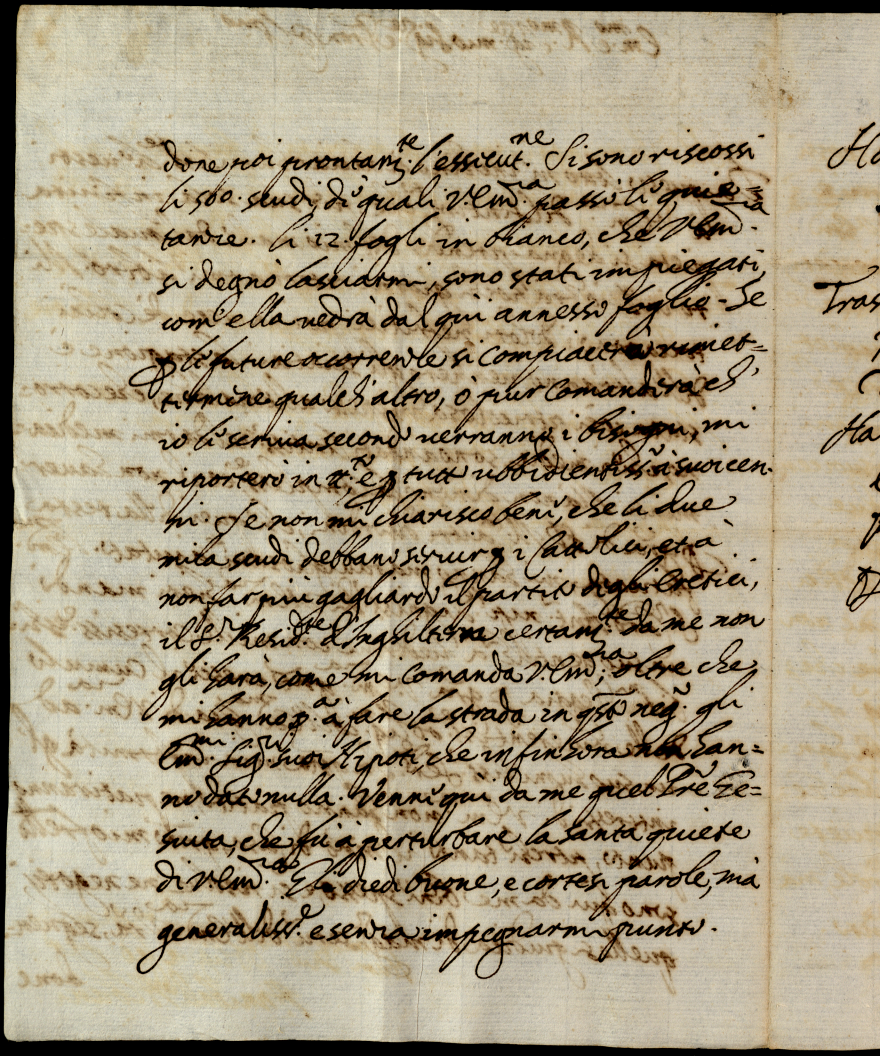 done poi prontam.te l'essecut.ne Si sono riscossi
li 500. scudi, di quali V. Em.a passò le quie=
tanze. li 12. fogli in bianco, che V. Em.za
si degnò lasciarmi, sono stati impiegati,
com'ella vedrà dal qui annesso foglio. Se
p le future occorrenze si compiacerà rimet=
termene qualch'altro, ò pur comanderà ch'
io le scriva secondo verranno i bisogni, mi
riporterò in tt.to e p tutto ubbidientiss.o à suoi cen-
ni. Se non mi chiarisco bene, che li due
mila scudi debbano servir p i Cattolici, et à
non far più gagliardo il partito degli Eretici,
il S.r Resid.te d'Inghilterra certam.te da me non
gli harà, come mi comanda V. Em.za; oltre che
mi hanno p.a à fare la strada in q.sto neg.o gli
Em.mi Sig.ri suoi Nipoti, che infin hora non han=
no dato nulla. Venne quì da me quel Pre Ge=
suita, che fu à perturbare la santa quiete
di V. Em.za Gli diedi buone, e cortesi parole, mà
generaliss.e e senza impegnarmi punto.
Ha
Tras
Ha